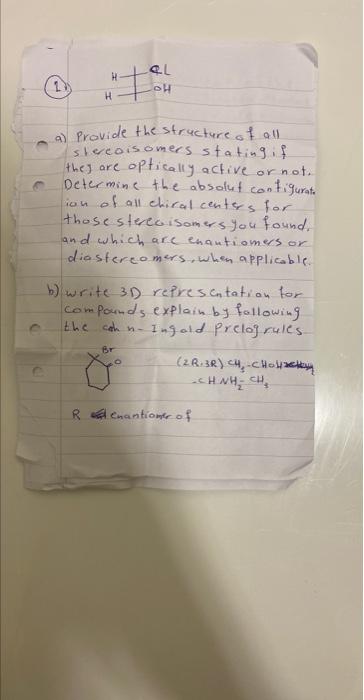 1)
H CL
H OH
a) Provide the structure of all
stereoisomers stating if
they are optically active or not.
Determine the absolut configurat
ion of all chiral centers for
those stereoisomers you found,
and which are enantiomers or
diastereomers, when applicable.
b) write 3D representation for
compounds explain by following
the cah n- Ingold prelog rules
Br
O
(2R,3R) CH3-CHOH
-CHNH2-CH3
R enantiomer of